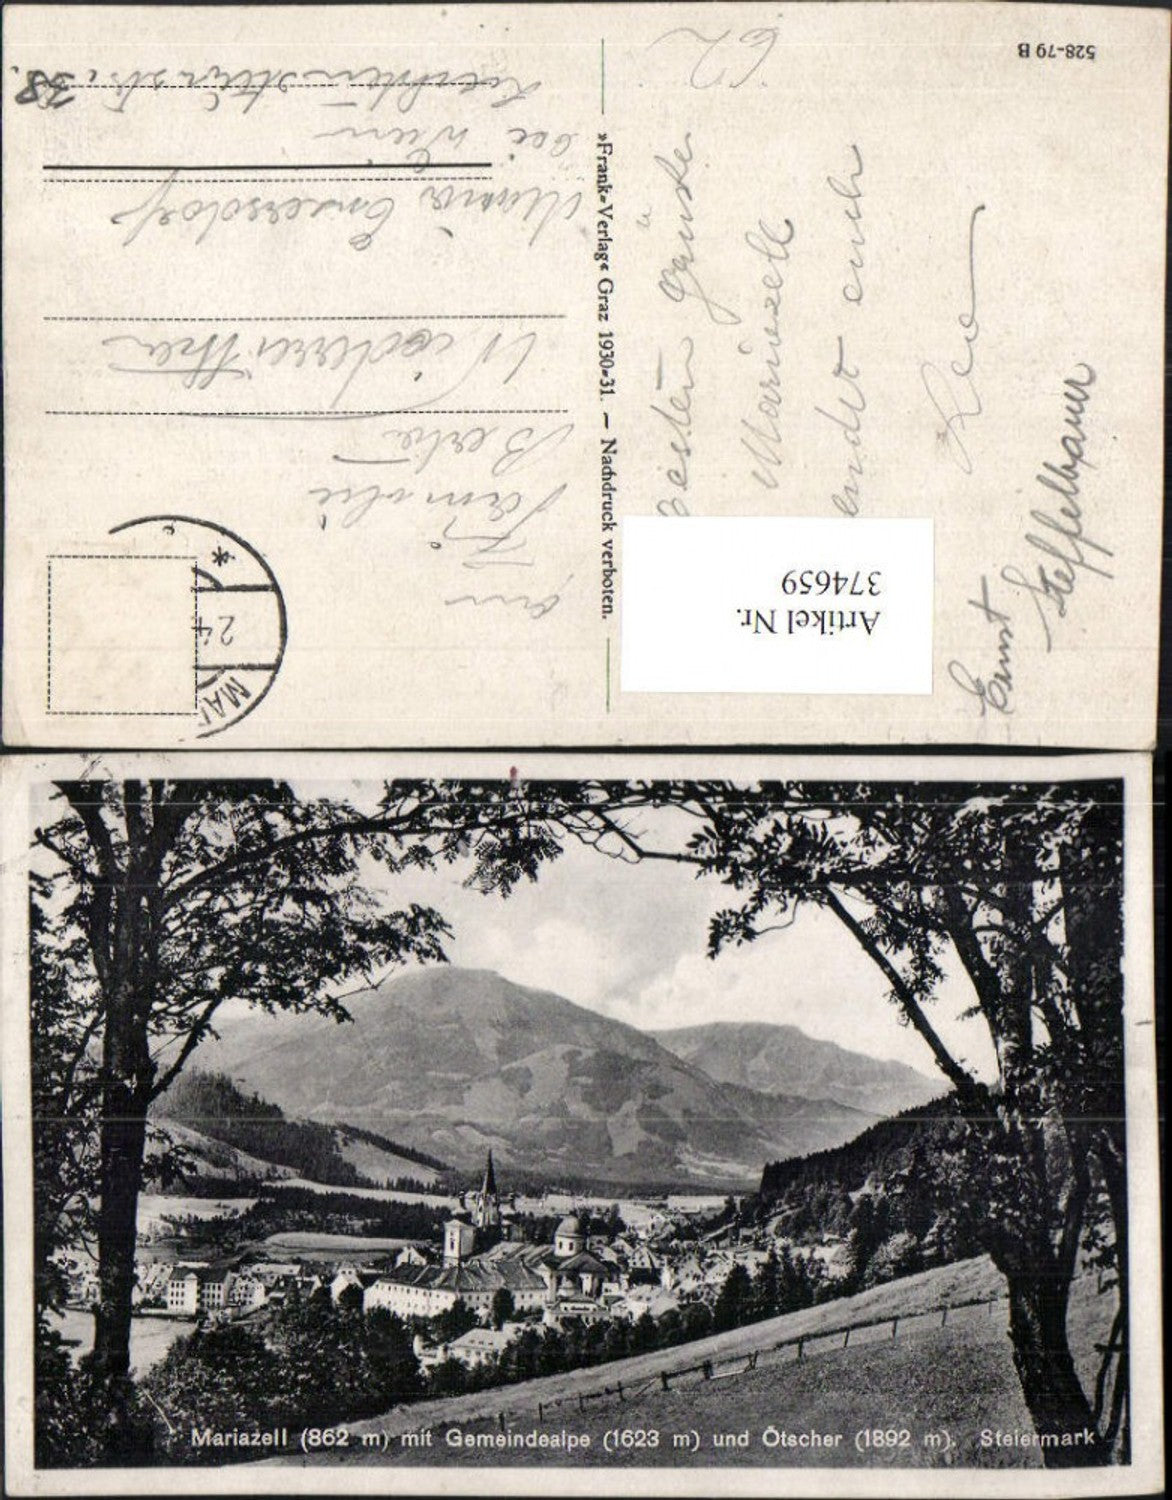 528-79 B
»Frank«-Verlag« Graz 1930-31. — Nachdruck verboten.
Artikel Nr.
374659
an
Familie
Berta
Maria Enzersdorf
bei Wien
38.
Besten Grüße
Mariazell
sendet euch
Leo
Ernst
Steffelbauer
24
MAR
Mariazell (862 m) mit Gemeindealpe (1623 m) und Ötscher (1892 m), Steiermark